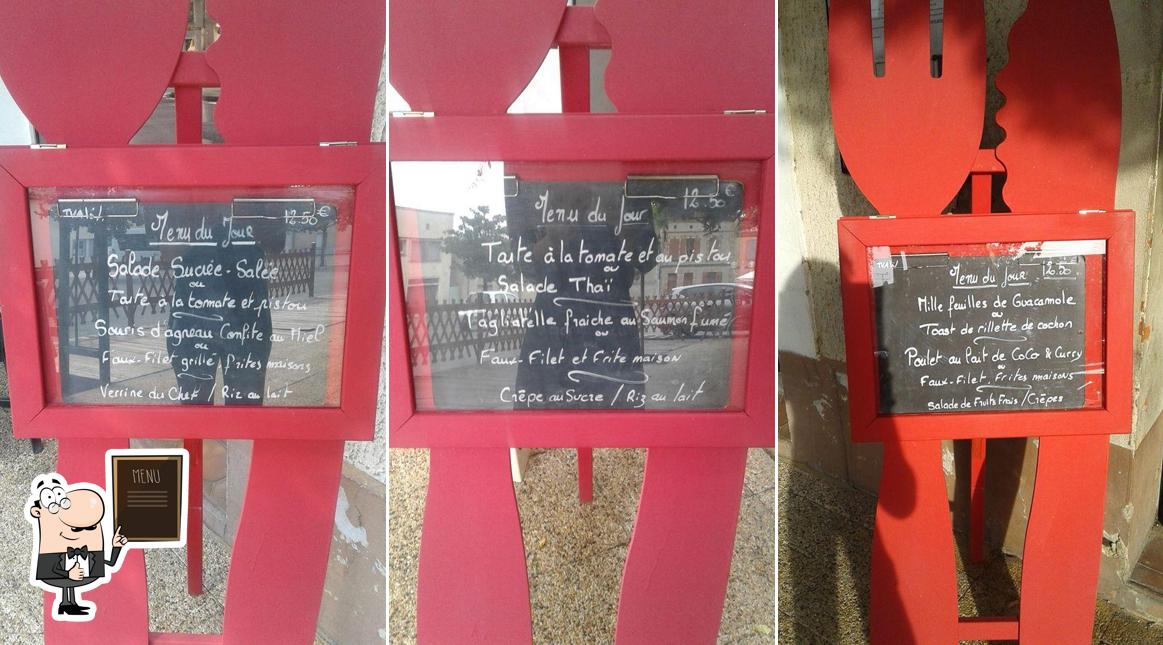 Menu du Jour 12.50€
Salade Sucrée-Salée
ou
Tarte à la tomate et pistou
Souris d'agneau Confite au Miel
ou
Faux-Filet grillé frites maisons
Verrine du Chef / Riz au lait
MENU
Menu du Jour 12.50€
Tarte à la tomate et au pistou
ou
Salade Thaï
Tagliatelle fraiche au Saumon fumé
ou
Faux-Filet et Frite maison
Crêpe au Sucre / Riz au lait
Menu du Jour 12.50
Mille feuilles de Guacamole
ou
Toast de rillette de cochon
Poulet au Lait de CoCo & Curry
ou
Faux-Filet Frites maisons
Salade de Fruits Frais / Crêpes